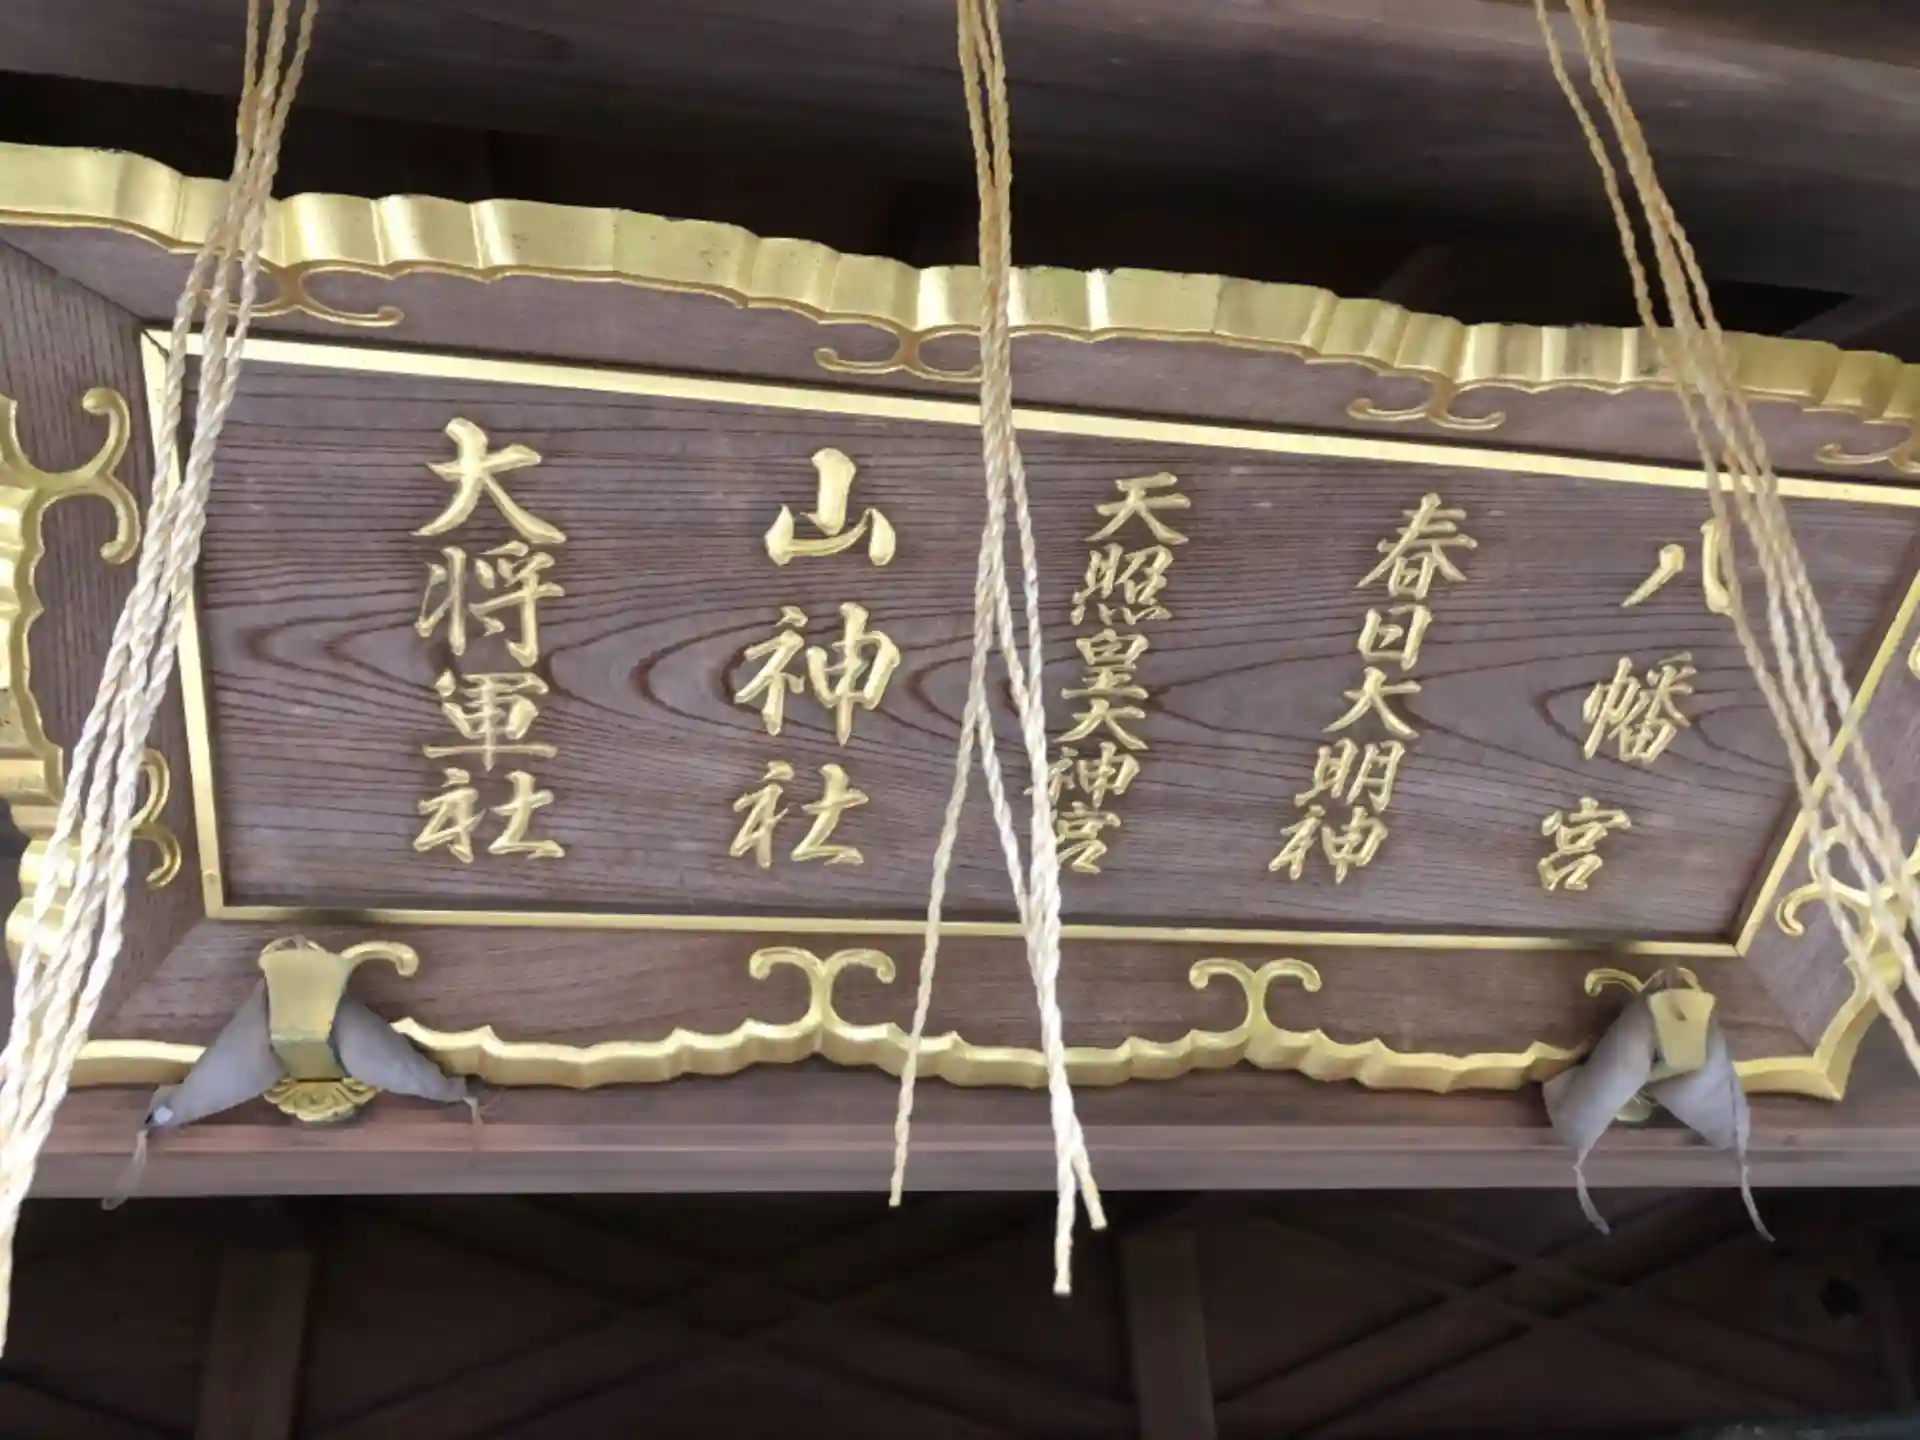 八幡宮
春日大明神
天照皇大神宮
山神社
大将軍社